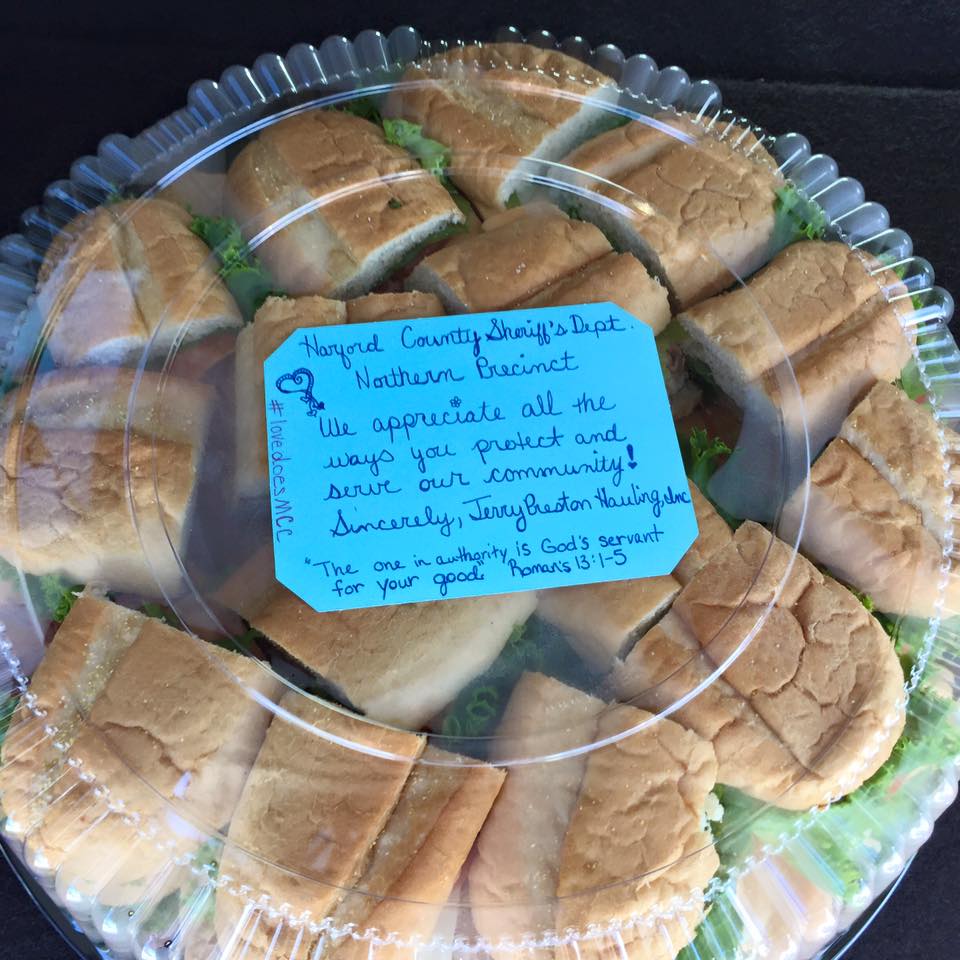 Harford County Sheriff's Dept.
Northern Precinct
We appreciate all the
ways you protect and
serve our community!
Sincerely, Jerry Preston Hauling, Inc
"The one in authority is God's servant
for your good." Roman's 13:1-5
#lovedoesMCC